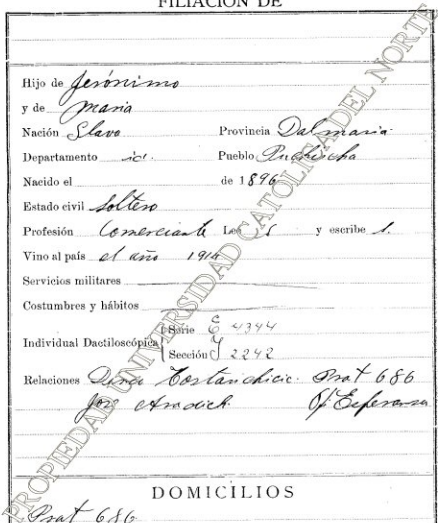 FILIACION DE
Hijo de Jerónimo
y de Maria
Nación Slava Provincia Dalmaria.
Departamento id. Pueblo
Nacido el de 1896
Estado civil Soltero
Profesión Comerciante Lee s y escribe s.
Vino al país el año 1914
Servicios militares
Costumbres y hábitos
Individual Dactiloscópica Serie E 4344
Sección J 2242
Relaciones Prat 686
José Of. Esperanza
DOMICILIOS
Prat 686
PROPIEDAD UNIVERSIDAD CATOLICA DEL NORTE